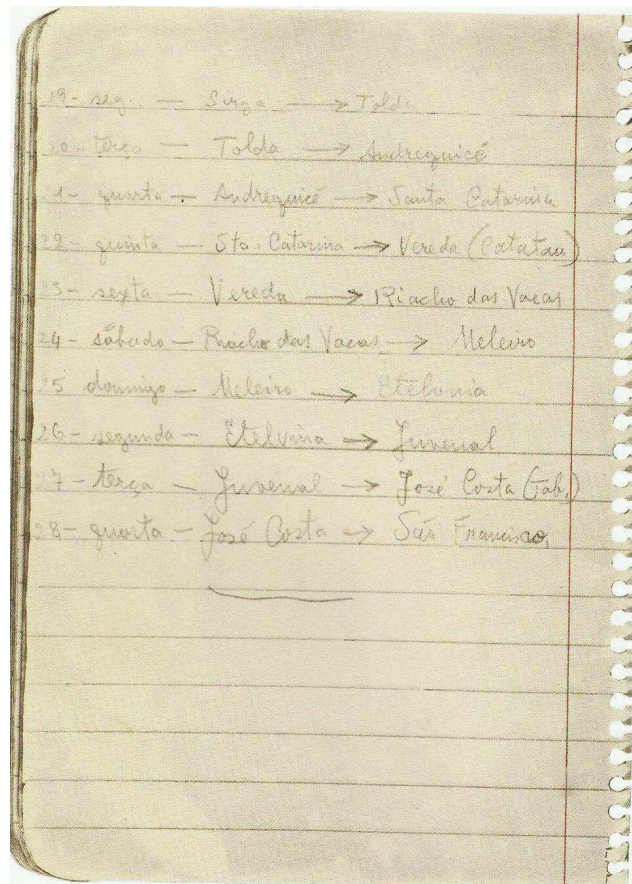 19- seg. — Sirga → Tolda
20- terça — Tolda → Andrequicé
21- quarta — Andrequicé → Santa Catarina
22- quinta — Sta. Catarina → Vereda (Catatau)
23- sexta — Vereda → Riacho das Vacas
24- sábado — Riacho das Vacas → Meleiro
25 domingo — Meleiro → Etelvina
26- segunda — Etelvina → Juvenal
27- terça — Juvenal → José Costa (Fab.)
28- quarta — José Costa → São Francisco.